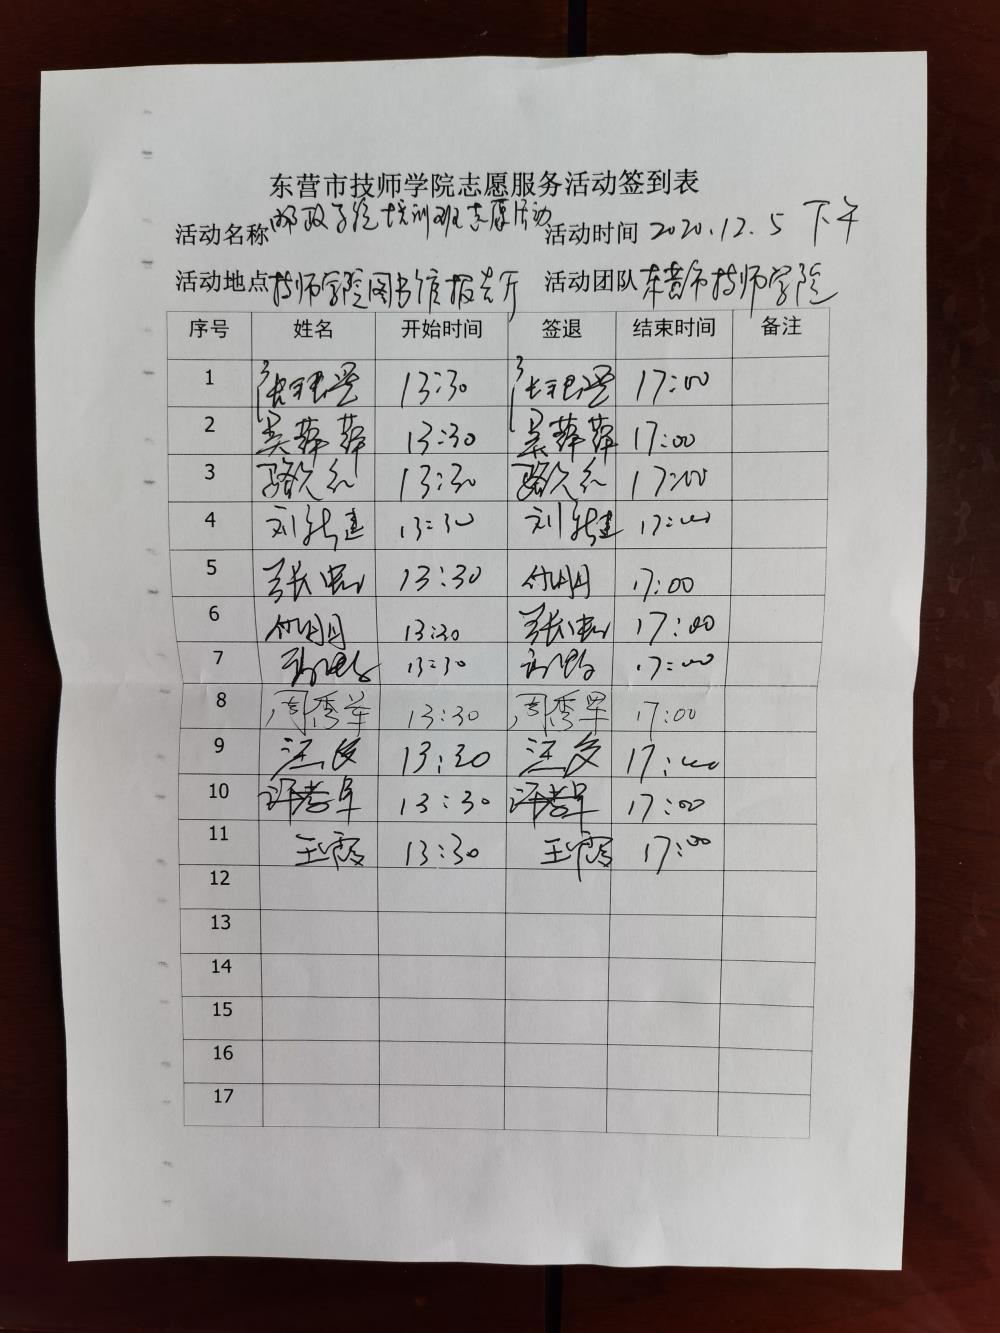 东营市技师学院志愿服务活动签到表
活动名称 邮政学院培训班志愿活动 活动时间 2020.12.5 下午
活动地点 技师学院图书馆报告厅 活动团队 东营市技师学院
序号 姓名 开始时间 签退 结束时间 备注
1 13:30 17:00
2 吴萍萍 13:30 吴萍萍 17:00
3 骆 13:30 骆 17:00
4 刘 13:30 刘 17:00
5 张 13:30 17:00
6 13:30 张 17:00
7 13:30 17:00
8 周秀举 13:30 周秀举 17:00
9 汪 13:30 汪 17:00
10 许孝卓 13:30 许孝卓 17:00
11 王霞 13:30 王霞 17:00
12
13
14
15
16
17